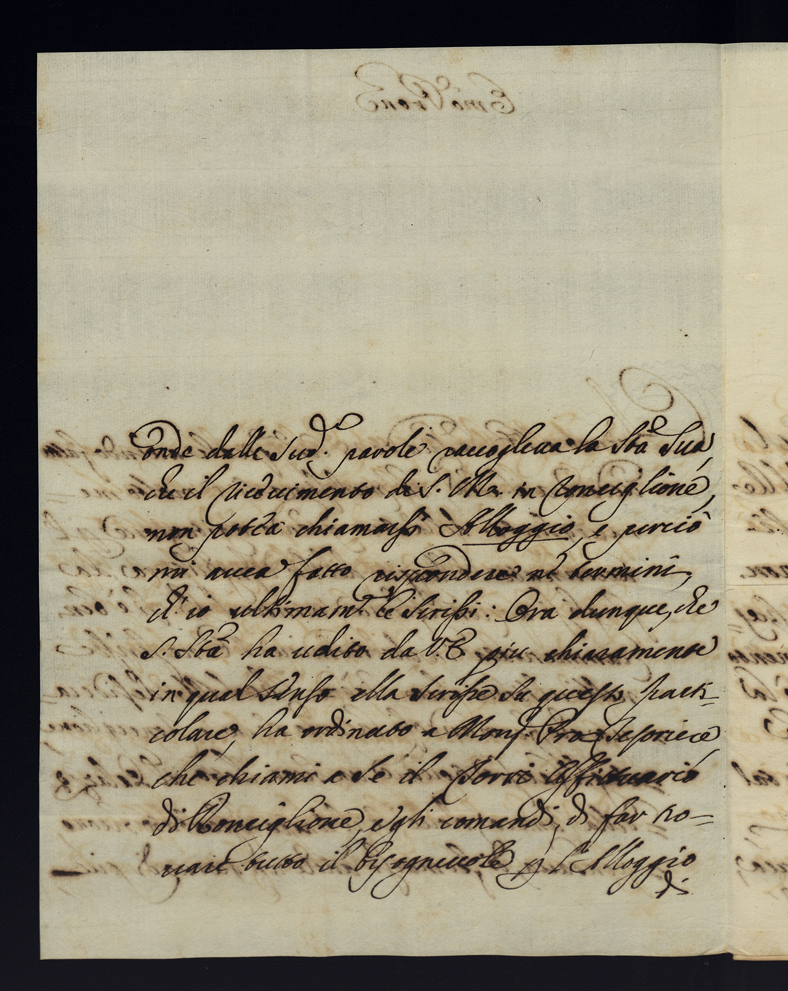 onde dalli Sud.e parole raccoglieva la Stà Sua,
che il ricevimento di S. M. in Ronciglione,
non potea chiamarsi Alloggio, e perciò
mi avea fatto rispondere ne' termini,
ch' io ultimam.te le scrissi: Ora dunque, che
S. Stà ha udito da V. E. più chiaramente
in qual senso ella scrisse su questo parti-
colare, ha ordinato a Mons.r Pro Tesoriere
che chiami a se il Affittuario
di Ronciglione, e gli comandi, di far tro-
vare tutto il bisognevole p l'Alloggio
di